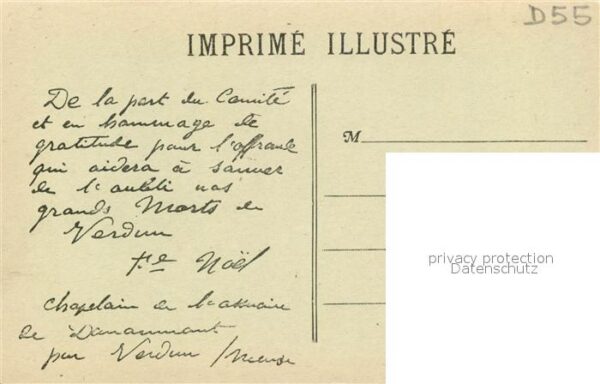 D55
IMPRIMÉ ILLUSTRÉ
De la part du Comité
et en hommage de
gratitude pour l'offrande
qui aidera à sauver
de l'oubli nos
grands Morts de
Verdun
Noël
M
privacy protection
Datenschutz
chapelain de l'ossuaire
de Douaumont
par Verdun / Meuse